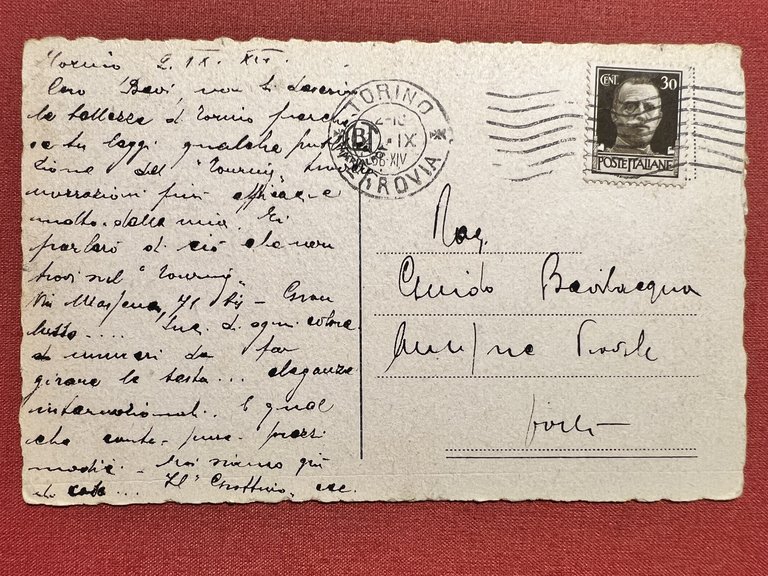 Torino 2. IX. XIV.
Caro Bevi, non ti descrivo
le bellezze di Torino perchè
se tu leggi qualche
zione del "Touring"
narrazioni più efficaci e
molto della mia. Ti
parlerò di ciò che non
trovi sul "Touring"
Via Massena, 71 bis - Gran
lusso.... Luci di ogni colore
da far
girare la testa... eleganze
internazionali. E quel
che conta - pure - prezzi
modici -
di .... Il "Grottino, ecc.
TORINO
IX
36-XIV
FERROVIA
CENT. 30
POSTE ITALIANE
Rag.
Guido Bevilacqua
Forlì